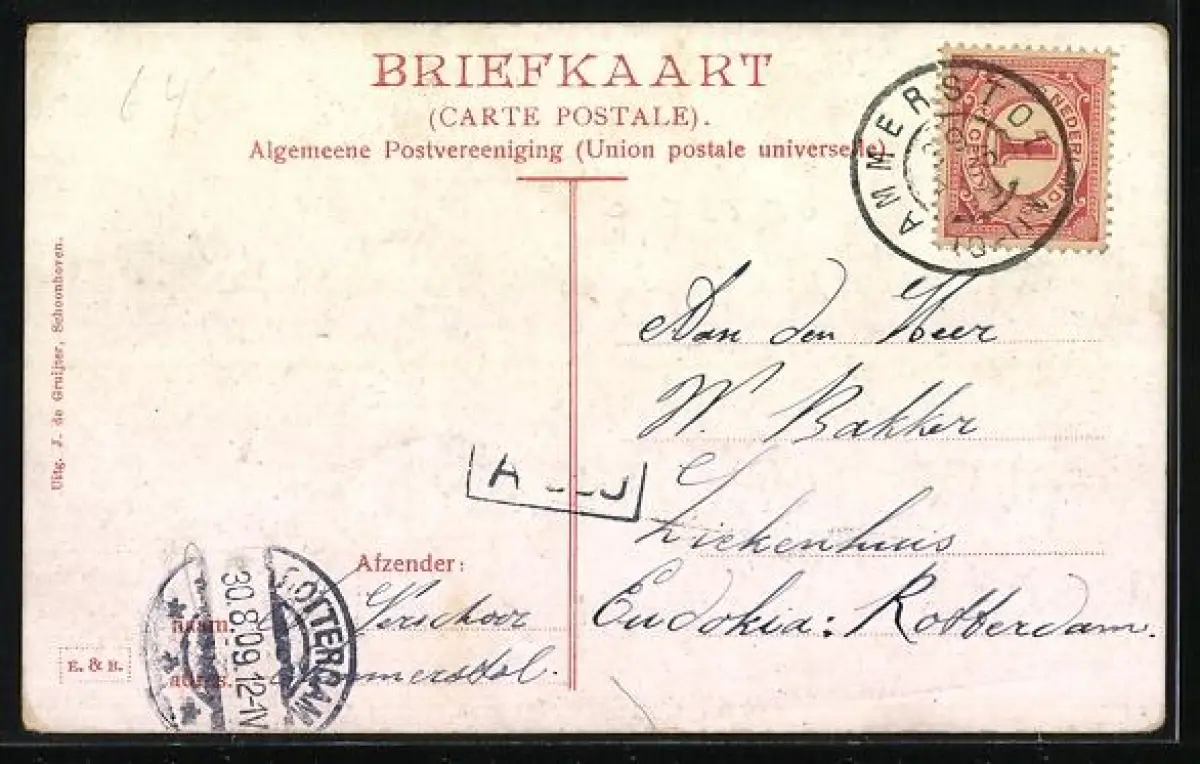 64
BRIEFKAART
(CARTE POSTALE).
Algemeene Postvereeniging (Union postale universelle)
AMMERSTOL
NEDERLAND
1
CENT
Uitg. J. de Gruijter, Schoonhoven.
Aan den Heer
W. Bakker
Ziekenhuis
Eudokia: Rotterdam.
Afzender:
naam. Verschoor
adres. Ammerstol.
E. & B.
ROTTERDAM
30.8.09.12-1V